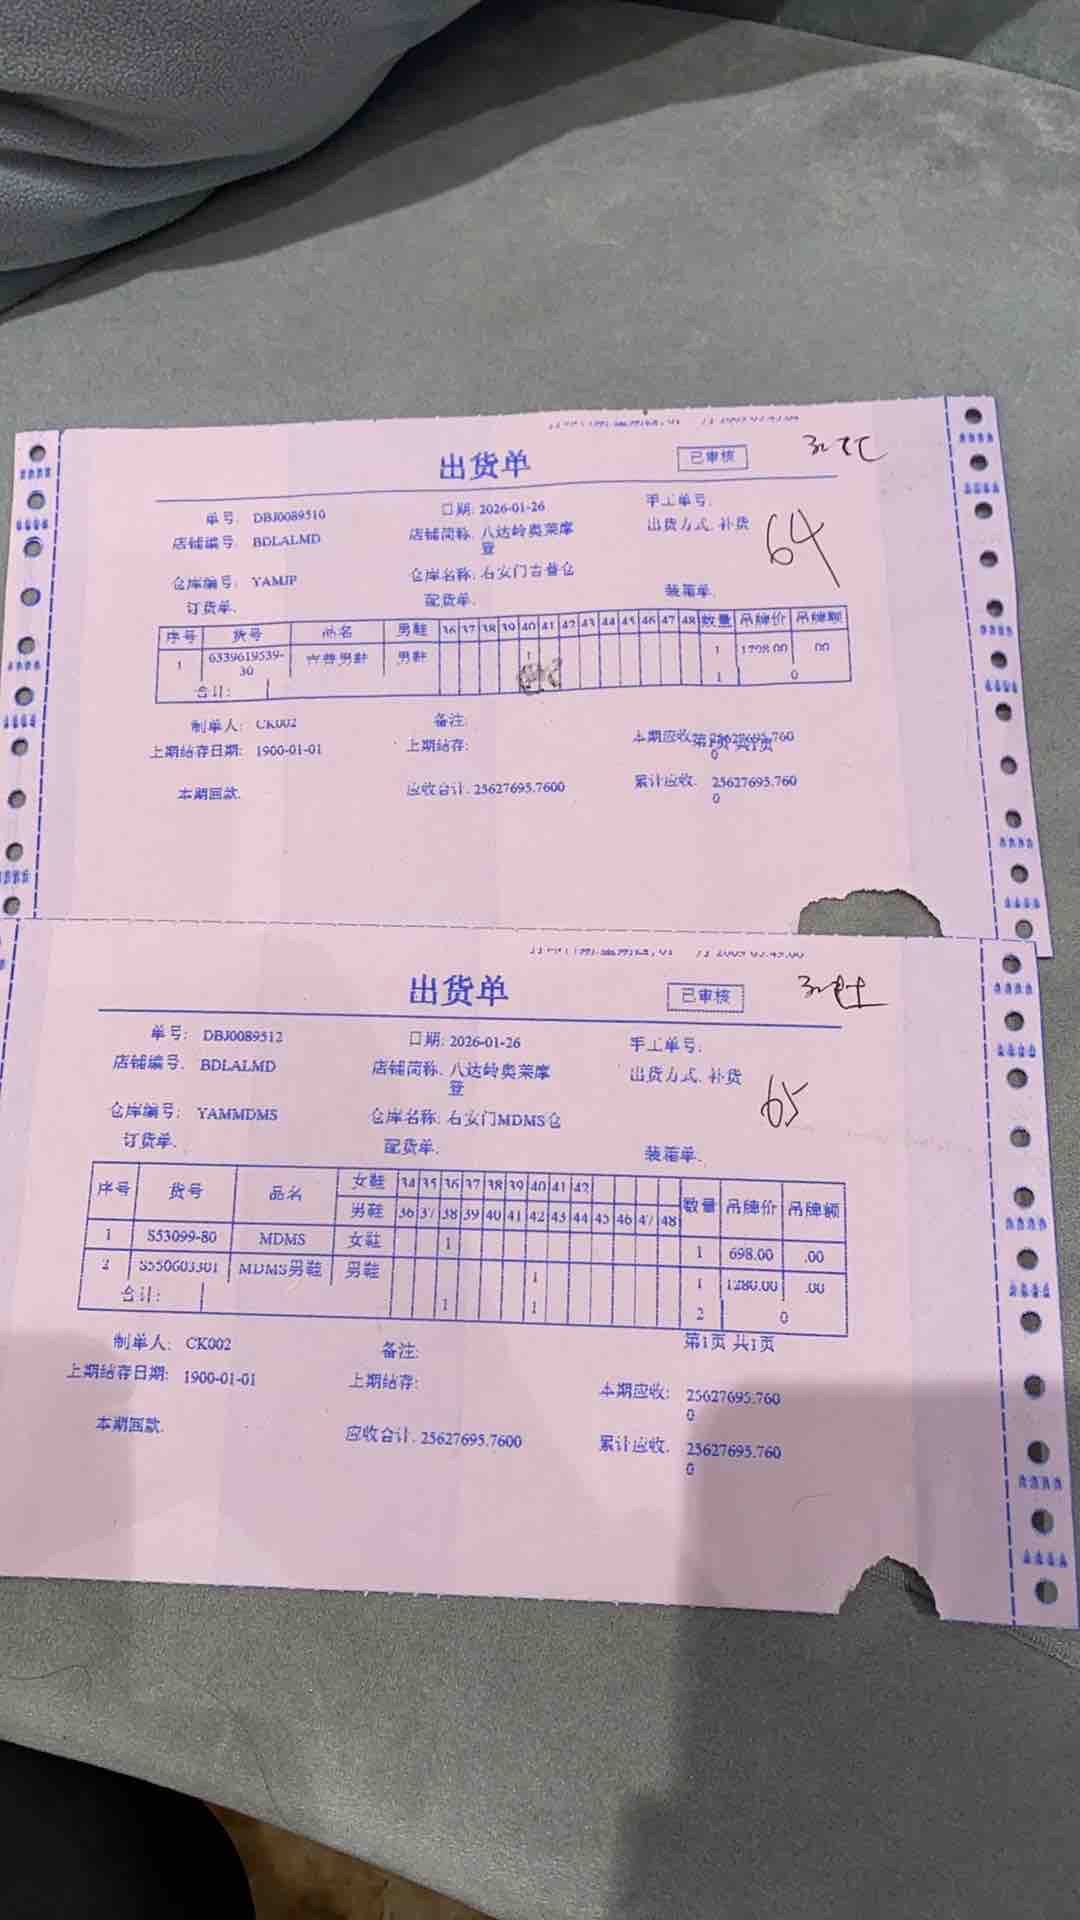 出货单 已审核
单号: DBJ0089510 日期: 2026-01-26 手工单号:
店铺编号: BDLALMD 店铺简称: 八达岭奥莱摩登 出货方式: 补货 64
仓库编号: YAMJP 仓库名称: 右安门吉普仓
订货单: 配货单: 装箱单:
序号 货号 品名 男鞋 36 37 38 39 40 41 42 43 44 45 46 47 48 数量 吊牌价 吊牌额
1 6339619539-30 吉普男鞋 男鞋 1 1 1798.00 .00
合计: 1 0
制单人: CK002 备注: 第1页 共1页
上期结存日期: 1900-01-01 上期结存: 本期应收: 25627695.7600
本期回款: 应收合计: 25627695.7600 累计应收: 25627695.7600
出货单 已审核
单号: DBJ0089512 日期: 2026-01-26 手工单号:
店铺编号: BDLALMD 店铺简称: 八达岭奥莱摩登 出货方式: 补货 65
仓库编号: YAMMDMS 仓库名称: 右安门MDMS仓
订货单: 配货单: 装箱单:
序号 货号 品名 女鞋 34 35 36 37 38 39 40 41 42 数量 吊牌价 吊牌额
男鞋 36 37 38 39 40 41 42 43 44 45 46 47 48
1 S53099-80 MDMS 女鞋 1 1 698.00 .00
2 S550603301 MDMS男鞋 男鞋 1 1 1280.00 .00
合计: 1 1 2 0
制单人: CK002 备注: 第1页 共1页
上期结存日期: 1900-01-01 上期结存: 本期应收: 25627695.7600
本期回款: 应收合计: 25627695.7600 累计应收: 25627695.7600